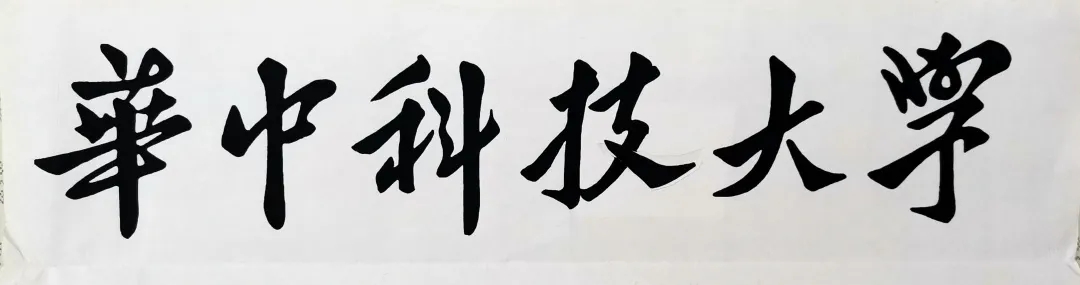 華中科技大學